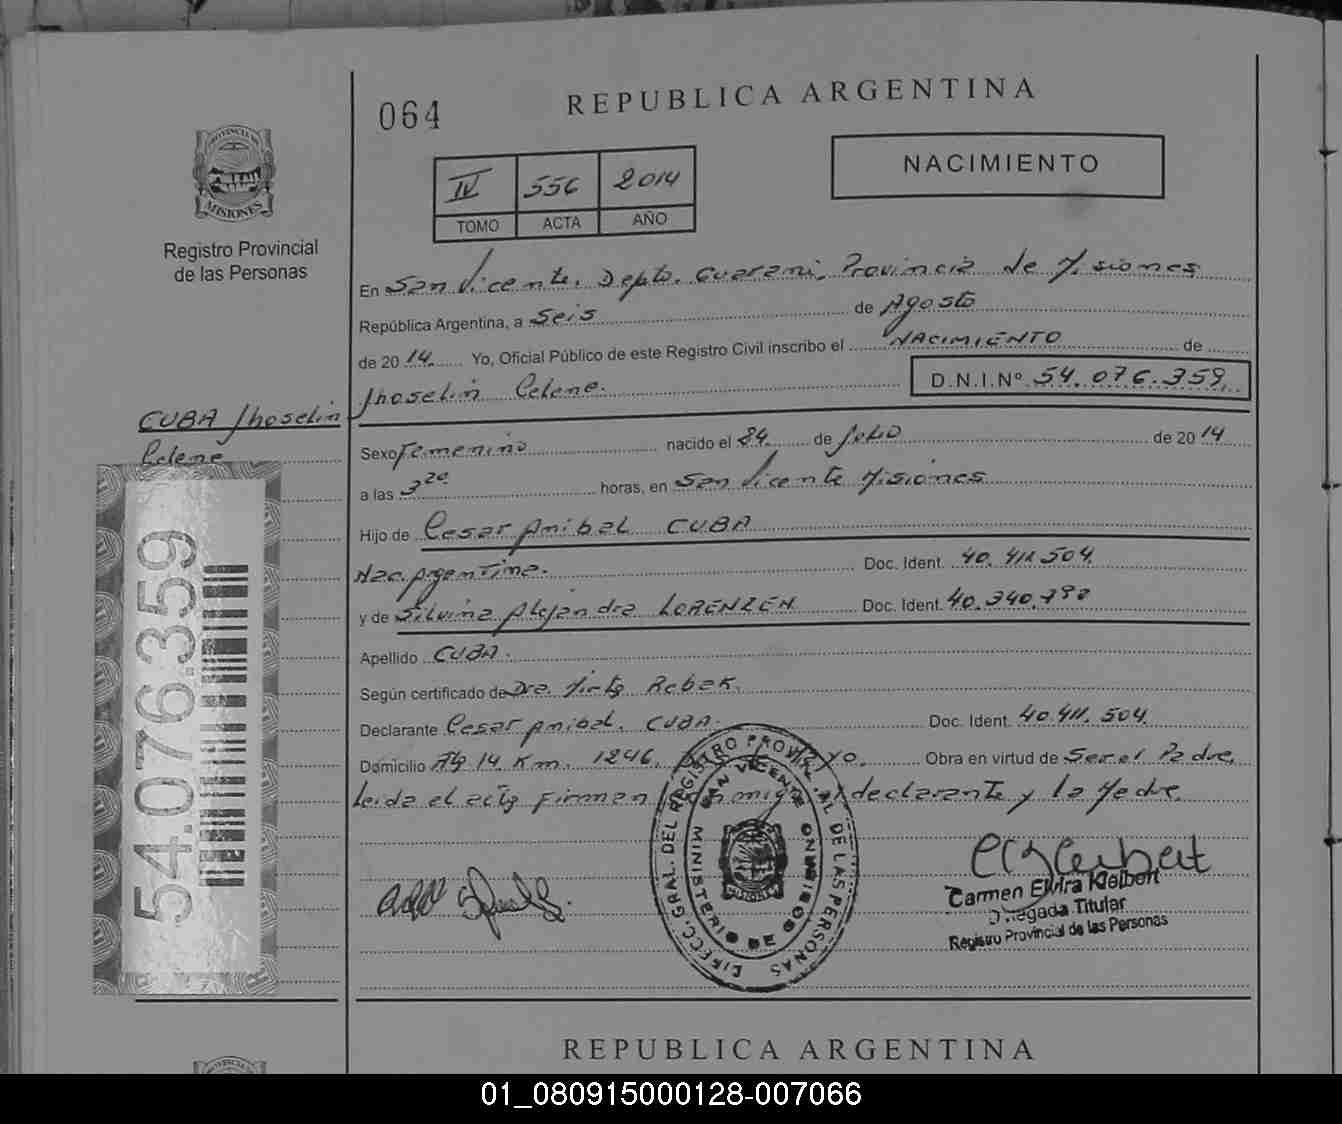 064
REPUBLICA ARGENTINA
IV 556 2014
TOMO ACTA AÑO
NACIMIENTO
PROVINCIA DE MISIONES
Registro Provincial
de las Personas
En San Vicente, Depto. Guarani, Provincia de Misiones
República Argentina, a Seis de Agosto
de 2014. Yo, Oficial Público de este Registro Civil inscribo el NACIMIENTO de
Jhoselin Celene. D.N.I.Nº 54.076.359
CUBA Jhoselin
Celene
Sexo Femenino nacido el 24 de Julio de 2014
a las 3 20 horas, en San Vicente Misiones
Hijo de Cesar Anibal CUBA
Nac. Argentina. Doc. Ident. 40.411.504
y de Silvina Alejandra LORENZEN Doc. Ident. 40.340.
Apellido CUBA.
Según certificado de Dra. Mirta Rebek.
Declarante Cesar Anibal CUBA. Doc. Ident. 40.411.504
Domicilio Km. 1246. Obra en virtud de Ser el Padre,
Leida el acta firman declarante y la Madre.
54.076.359
DIRECC. GRAL. DEL REGISTRO PROVINCIAL DE LAS PERSONAS
MINISTERIO DE GOBIERNO
SAN VICENTE
MISIONES
Carmen Elvira Kleibert
Delegada Titular
Registro Provincial de las Personas
REPUBLICA ARGENTINA
01_080915000128-007066